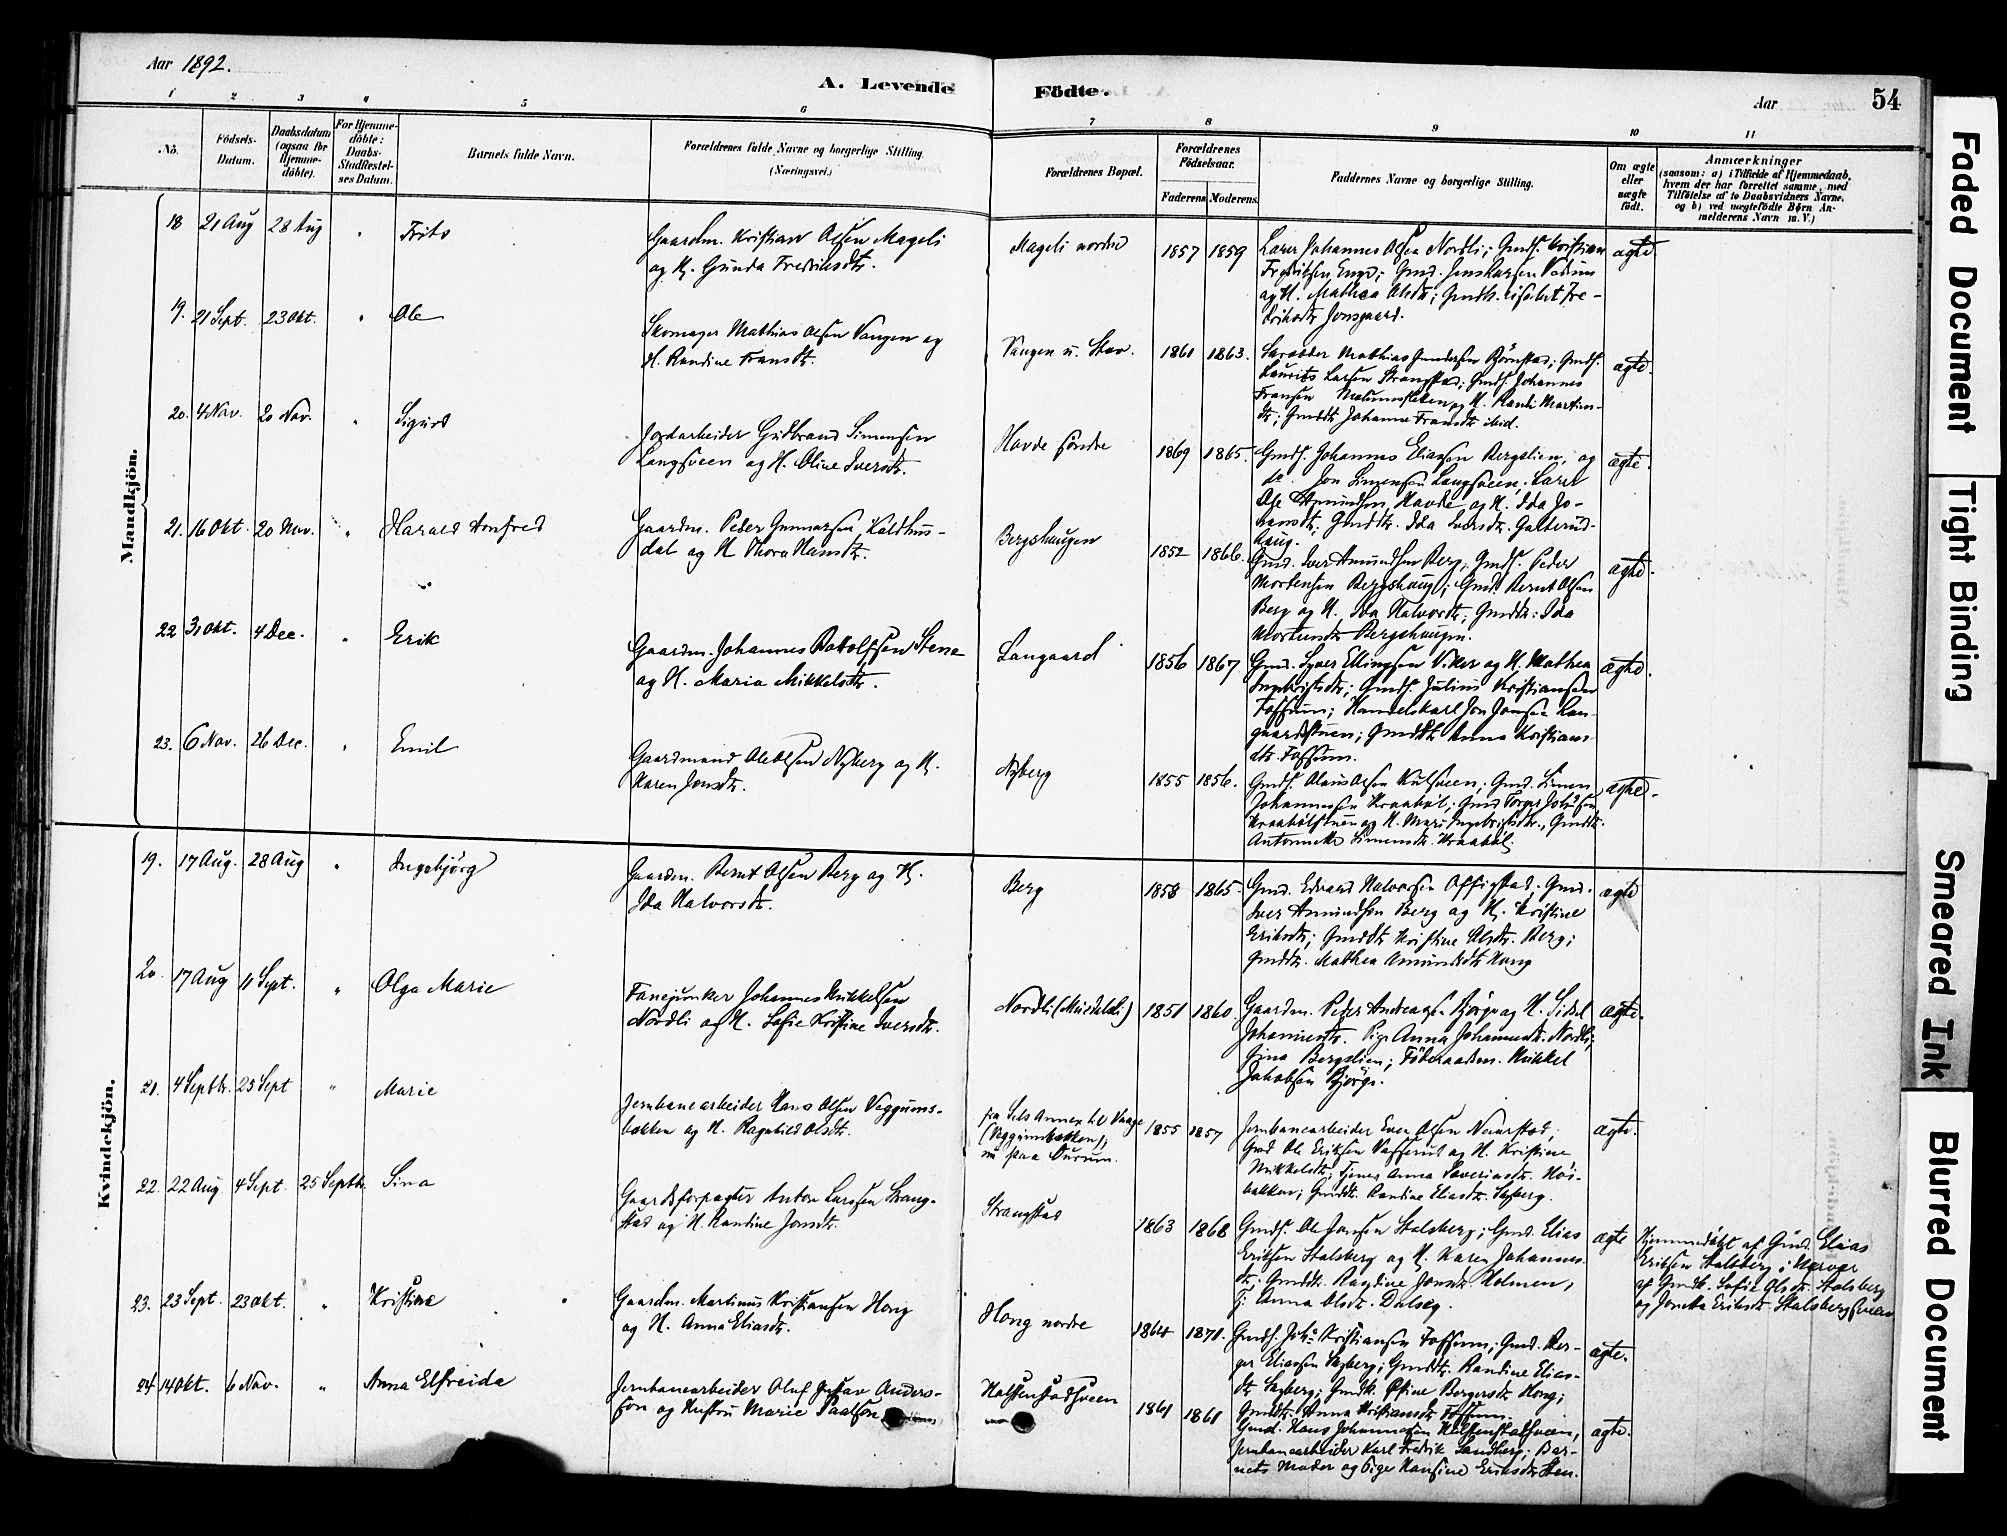 Aar 1892.
A. Levende Födte.
Aar
54
1 2 3 4 5 6 7 8 9 10 11
No.
Födsels-Datum.
Daabsdatum (ogsaa for Hjemme-döbte).
For Hjemme-döbte: Daabs-Stadfestel-ses Datum.
Barnets fulde Navn.
Forældrenes fulde Navne og borgerlige Stilling.
(Næringsvei.)
Forældrenes Bopæl.
Forældrenes Födselsaar.
Faderens Moderens.
Faddernes Navne og borgerlige Stilling.
Om ægte eller uægte født.
Anmærkninger
(saasom: a) i Tilfælde af Hjemmedaab,
hvem der har forrettet samme, med
Tilföielse af to Daabsvidners Navne.
og b) ved uægtefödte Börn An-
melderens Navn m. V.)
Mandkjön.
18 21 Aug 28 Aug " Frits
Gaardm. Kristian Olsen Mageli
og H. Gunda Fredriksdtr.
Mageli nordre 1857 1859
Larer Johannes Olsen Nordli; Gmds. Kristian
Fredriksen Enge; Gmd. Jens Larsen
og H. Mathea Olsdtr; Fre-
driksdtr Jonsgaard.
ægte
19. 21 Sept. 23 Okt. " Ole
Skomager Mathias Olsen Vangen og
H. Randine Fransdtr.
Vangen u. Stav. 1861 1863.
Mathias Gundersen Björnstad; Gmds.
Laurits Larsen Strangstad; Gmds. Johannes
Fransen og H. Randi Martins-
dtr; Gmddtr Johanne Fransdtr ibid.
ægte.
20. 4 Nov. 20 Nov. " Sigurd
Jordarbeider Gudbrand Simensen
Langsveen og H. Oline Iversdtr.
Hovde söndre 1869 1865.
Gmds. Johannes Eliassen Bergslien, og
do. Jon Simensen Langsveen. Larer
Ole Amundsen Hovde og H. Ida Jo-
hansdtr; Gmddtr. Ida Iversdtr. Galterud-
haug.
ægte.
21. 16 Okt. 20 Nov. " Harald Arnfred
Gaardm. Peder Gunnarsen Kaldhus-
dal og H Thora Hansdtr.
Bergshaugen 1852 1866.
Gmd. Iver Amundsen Berg; Gmds. Peder
Mortensen Bergshaug; Gmd. Bernt Olsen
Berg og H. Ida Halvorsdtr; Gmddtr. Ida
Mortensdtr Bergshaugen.
ægte.
22 31 Okt. 4 Dec. " Erik
Gaardm. Johannes Botolfsen Stene
og H. Maria Mikkelsdtr.
Langaard 1856 1867
Gmd. Syver Ellingsen Viker og H. Mathea
Ingebrigtsdtr; Gmds. Julius Kristiansen
Fossum; Handelskarl Jon Jonsen Lan-
gaardsstuen; Gmddtr Anna Kristians-
dtr. Fossum.
ægte.
23. 6 Nov. 26 Dec. " Emil
Gaardmand Ole Olsen Nyberg og H.
Karen Jonsdtr.
Nyberg 1855 1856.
Gmds. Olaus Olsen Kulsveen; Gmd. Simen
Johannessen Kraaböl; Gmd Torger Johsen
Kraabölstuen og H. Mari Ingebrigtsdtr., Gmddtr.
Antonette Simensdtr. Kraaböl.
ægte.
Kvindekjön.
19. 17 Aug. 28 Aug " Ingebjörg
Gaardm. Bernt Olsen Berg og H.
Ida Halvorsdtr.
Berg 1858 1865.
Gmd. Edvard Halvorsen Offigstad. Gmd.
Iver Amundsen Berg og H. Kristine
Eriksdtr; Gmddtr Kristine Olsdtr. Berg;
Gmddtr. Mathea Amundsdtr Hong
ægte
20. 17 Aug 11 Sept. " Olga Marie
Fanejunker Johannes Mikkelsen
Nordli og H. Sofie Kristine Iversdtr.
Nordli (Musdalsli) 1851 1860.
Gaardm. Peder Andreasen Björge og H. Sidsel
Johannesdtr. Pige Anna Johannesdtr. Nordli;
Gina Bergslien; Föderaadsm. Mikkel
Jakobsen Björge.
ægte.
21. 4 Septbr. 25 Sept " Marie
Jernbanearbeider Hans Olsen Veggums-
bakken og H. Ragnhild Olsdtr.
fra Sels Annex til Vaage
(Veggumsbakken);
nu paa Aurum.
1855 1857
Jernbanearbeider Even Olsen Naarstad,
Gmd Ole Eriksen Vasserud og H. Kristine
Mikkelsdtr; Tjener Anna Severinsdtr. Mos-
bakken; Gmddtr. Randine Eliasdtr. Skyberg.
ægte.
22. 22 Aug 4 Sept. 25 Septbr. Sina
Gaardsforpagter Anton Larssen Strang-
stad og H. Randine Jonsdtr.
Strangstad 1863 1868
Gmds. Ole Jonsen Stalsberg; Gmd. Elias
Eriksen Stalsberg og H. Karen Johannes-
dtr; Gmddtr. Randine Jonsdtr. Holmen,
Tj. Anna Olsdtr. Dalseg.
ægte
Hjemmedöbt af Gmd. Elias
Eriksen Stalsberg i Nærvær
af Gmdk. Sofie Olsdtr. Stalsberg
og Jonetta Eriksdtr. Stalsbergsveen
23. 23 Sept. 23 Okt. " Kristine
Gaardm. Martinus Kristiansen Hong
og H. Anna Eliasdtr.
Hong nordre 1864 1871.
Gmds. Johs Kristiansen Fossum; Gmd. Ber-
ger Eliassen Skyberg; Gmddtr. Randine Elias-
dtr Skyberg; Gmdk. Oline Bergersdtr Hong;
Gmddtr. Anna Kristiansdtr Fossum.
ægte.
24 14 Okt. 6 Nov. " Anna Elfreida
Jernbanearbeider Oluf Gustav Anders-
son og Hustru Marie Paulson
Holstenstadsveen 1861 1861
Gmd. Hans Johannesen Holstenstadsveen,
Jernbanearbeider Karl Fredrik Sandberg; Bar-
nets Moder og Pige Hansine Eriksdtr Sten.
ægte.
Faded Document
Tight Binding
Smeared Ink
Blurred Document